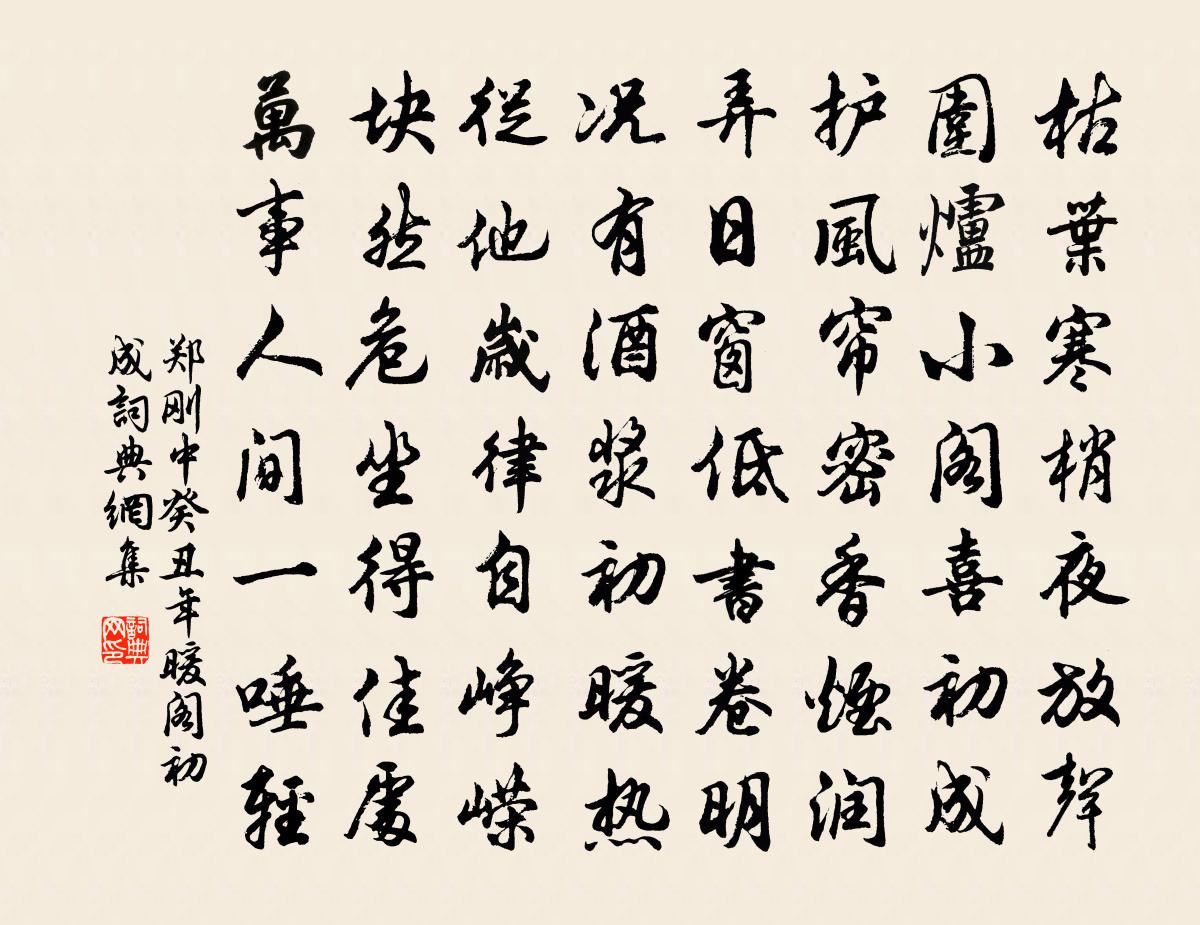 枯葉寒梢夜放聲
圍爐小阁喜初成
护風帘密香煙润
弄日窗低書卷明
况有酒漿初暖热
從他歲律自峥嵘
块然危坐得佳處
萬事人间一唾輕
郑刚中癸丑年暖阁初
成詞典網集
詞典网印